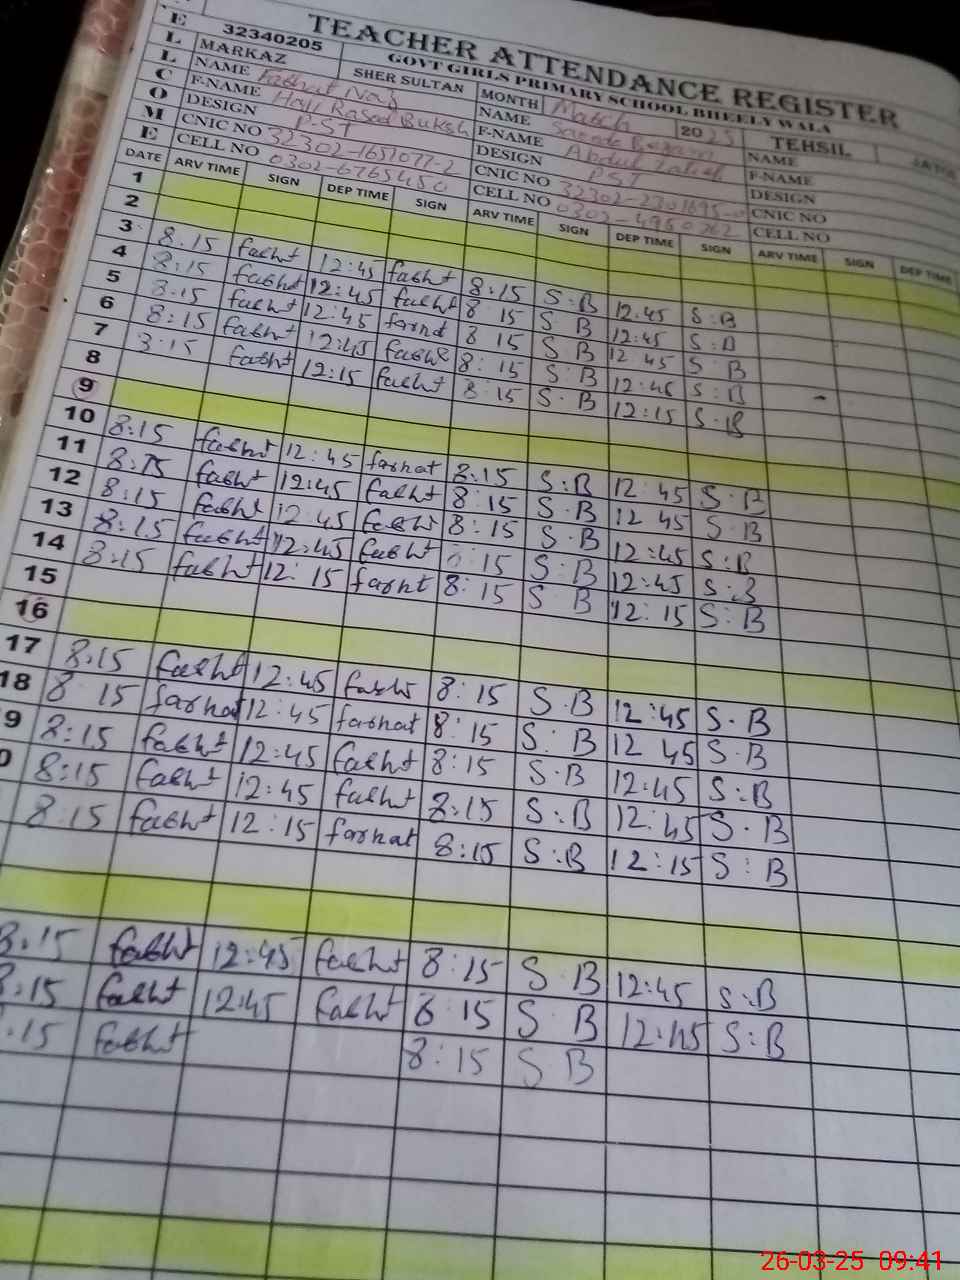 TEACHER ATTENDANCE REGISTER
GOVT GIRLS PRIMARY SCHOOL BHEELY WALA
E 32340205
L MARKAZ SHER SULTAN MONTH March 2025 TEHSIL
L NAME Farhat NAME Begam NAME
C F-NAME Haji Rasool Buksh F-NAME Abdul F-NAME
O DESIGN PST DESIGN PST DESIGN
M CNIC NO 32302-1651077-2 CNIC NO CNIC NO
E CELL NO 0302-6765450 CELL NO CELL NO
DATE ARV TIME SIGN DEP TIME SIGN ARV TIME SIGN DEP TIME SIGN ARV TIME SIGN DEP TIME
1
2
3 8:15 Farht 12:45 Farht 8:15 S:B 12:45 S:B
4 8:15 Farht 12:45 Farht 8 15 S:B 12:45 S:B
5 8:15 Farht 12:45 Farhat 8 15 S:B 12:45 S:B
6 8:15 Farht 12:45 Farht 8:15 S:B 12:45 S:B
7 8:15 Farht 12:15 Farht 8:15 S:B 12:15 S:B
8
9
10 8:15 Farht 12:45 farhat 8:15 S:B 12:45 S:B
11 8:15 Farht 12:45 Farht 8:15 S:B 12 45 S:B
12 8:15 Farht 12:45 Farht 8:15 S:B 12:45 S:B
13 8:15 Farht 12:45 Farht 8:15 S:B 12:45 S:B
14 8:15 Farht 12:15 farhat 8:15 S B 12:15 S:B
15
16
17 8:15 Farht 12:45 Farht 8:15 S:B 12:45 S.B
18 8 15 farhat 12:45 farhat 8:15 S:B 12 45 S.B
9 8:15 Farht 12:45 Farht 8:15 S.B 12:45 S:B
0 8:15 Farht 12:45 Farht 8:15 S:B 12:45 S.B
8:15 Farht 12:15 farhat 8:15 S:B 12:15 S:B
8:15 Farht 12:45 Farht 8:15 S.B 12:45 S:B
8:15 Farht 12:45 Farht 8 15 S B 12:45 S:B
:15 Farht 8:15 S B
26-03-25 09:41